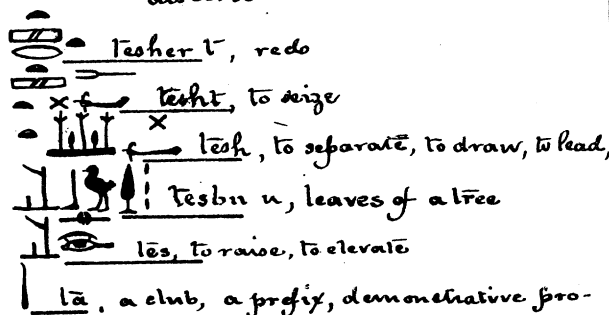 tesher t, redo
tesht, to seize
tesh, to separate, to draw, to lead,
tesbu u, leaves of a tree
tes, to raise, to elevate
tā, a club, a prefix, demonstrative pro-